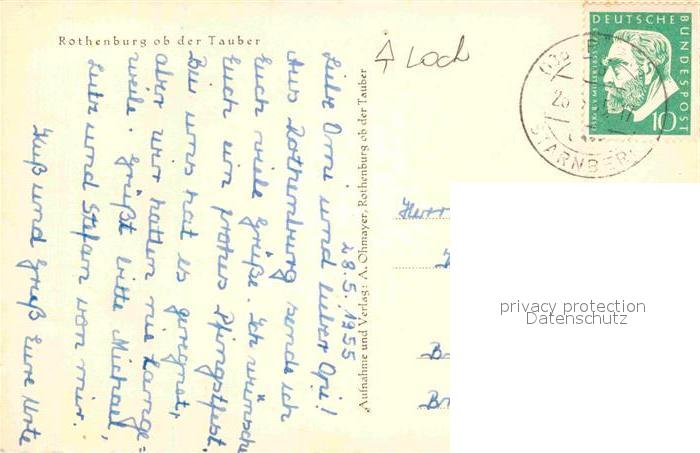 Rothenburg ob der Tauber
Loch
DEUTSCHE
BUNDESPOST
10
STARNBERG
28.5.1955
Liebe Omi und lieber Opi!
Aus Rothenburg sende ich
Euch viele Grüße. Ich wünsche
Euch ein frohes Pfingstfest.
Bei uns hat es geregnet,
aber wir hatten nie Lange=
weile. Grüßt bitte Michael,
Lutz und Stefan von mir.
Kuß und Gruß Eure
Aufnahme und Verlag: A. Ohmayer, Rothenburg ob der Tauber
Herrn
privacy protection
Datenschutz